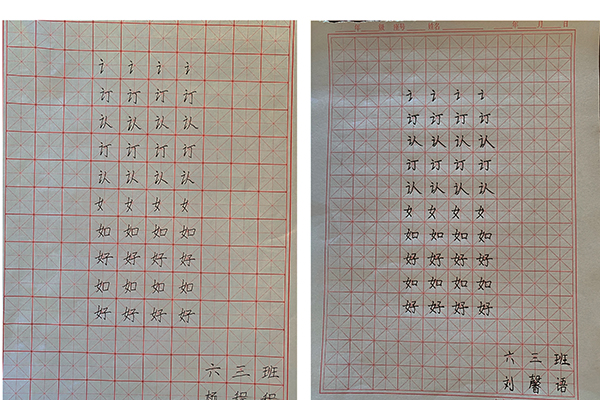 讠讠讠讠
订订订订
认认认认
订订订订
认认认认
女女女女
如如如如
好好好好
如如如如
好好好好
六三班
年 班 姓名 年 月 日
讠讠讠讠
订订订订
认认认认
订订订订
认认认认
女女女女
如如如如
好好好好
如如如如
好好好好
六三班
刘馨语